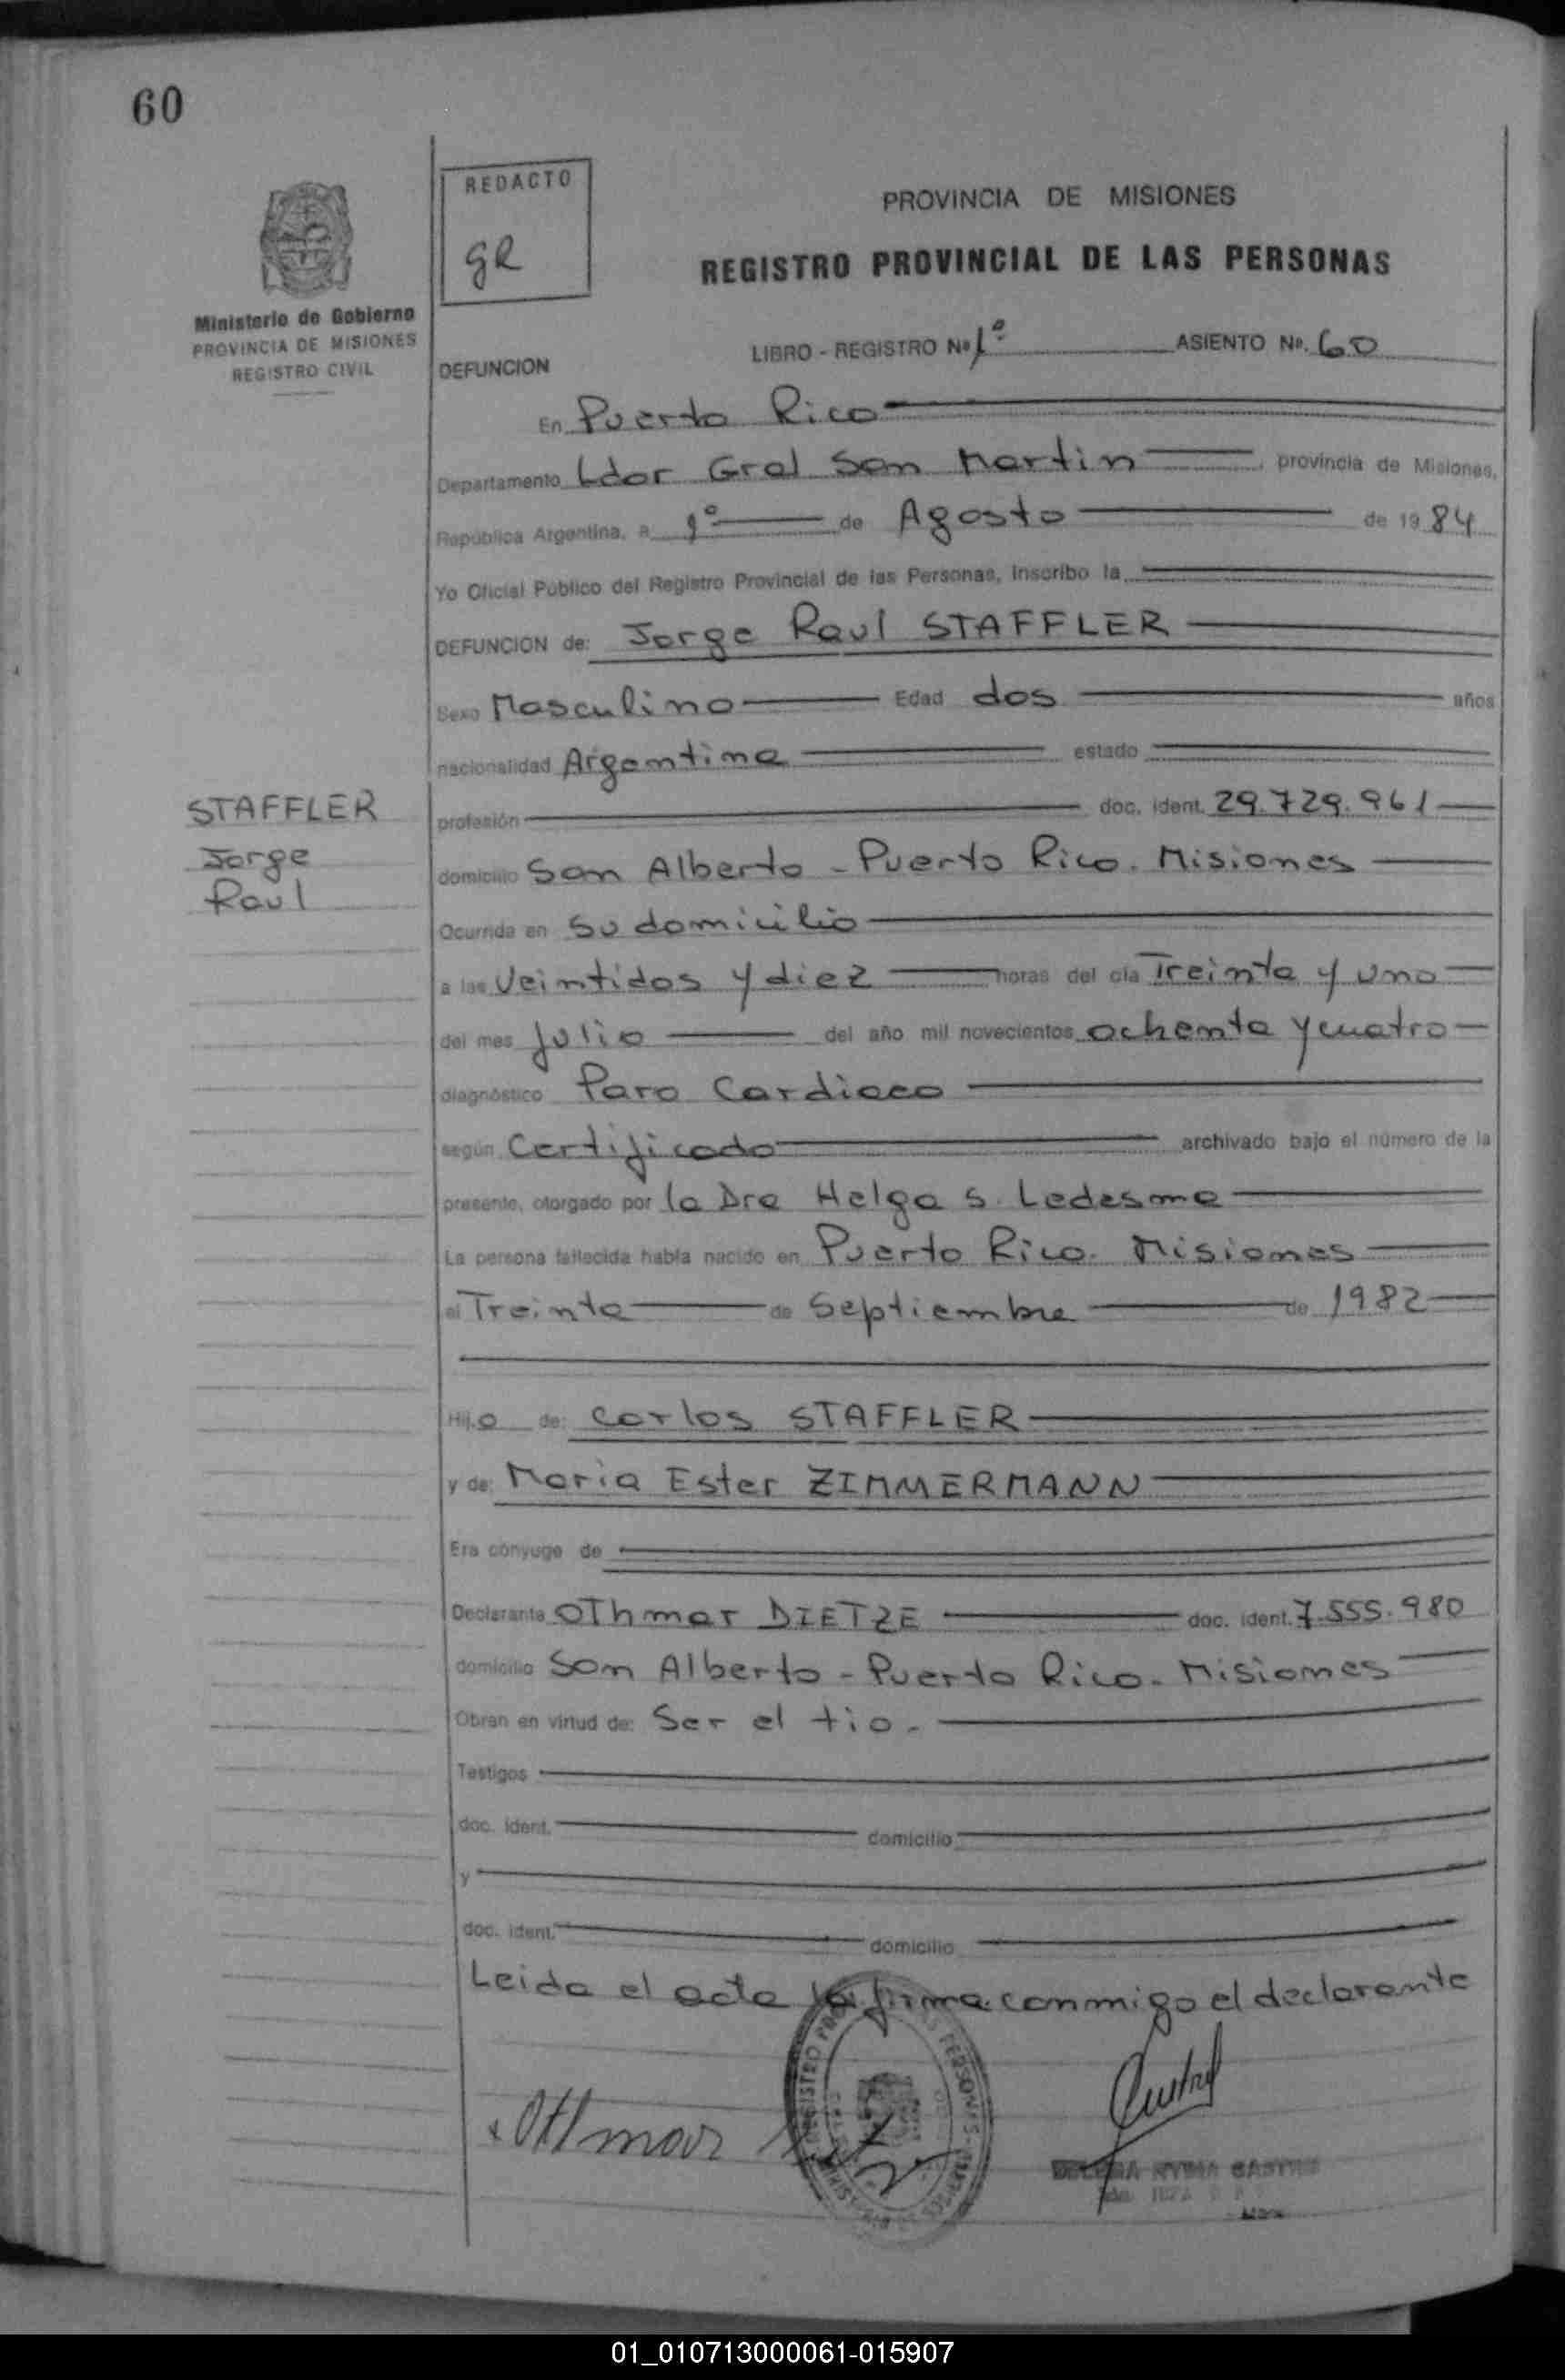 60
REDACTO
gR
PROVINCIA DE MISIONES
REGISTRO PROVINCIAL DE LAS PERSONAS
Ministerio de Gobierno
PROVINCIA DE MISIONES
REGISTRO CIVIL
DEFUNCION
LIBRO - REGISTRO Nº 1º ASIENTO Nº. 60
En Puerto Rico
Departamento Ldor Gral San Martin , provincia de Misiones,
República Argentina, a 1º de Agosto de 1984
Yo Oficial Público del Registro Provincial de las Personas, inscribo la
DEFUNCION de: Jorge Raul STAFFLER
Sexo Masculino Edad dos años
nacionalidad Argentina estado
STAFFLER
Jorge
Raul
profesión doc. ident. 29.729.961
domicilio San Alberto - Puerto Rico. Misiones
Ocurrida en su domicilio
a las Veintidos y diez horas del día Treinta y uno
del mes Julio del año mil novecientos ochenta y cuatro
diagnóstico Paro Cardiaco
según Certificado archivado bajo el número de la
presente, otorgado por la Dra Helga S. Ledesma
La persona fallecida había nacido en Puerto Rico. Misiones
el Treinta de Septiembre de 1982
Hijo de: Carlos STAFFLER
y de: Maria Ester ZIMMERMANN
Era cónyuge de
Declarante OThmar DIETZE doc. ident. 7.555.980
domicilio San Alberto - Puerto Rico. Misiones
Obran en virtud de: Ser el tio.
Testigos
doc. ident. domicilio
y
doc. ident. domicilio
Leida el acta la firma conmigo el declarante
Othmar
REGISTRO PERSONAS
01_010713000061-015907